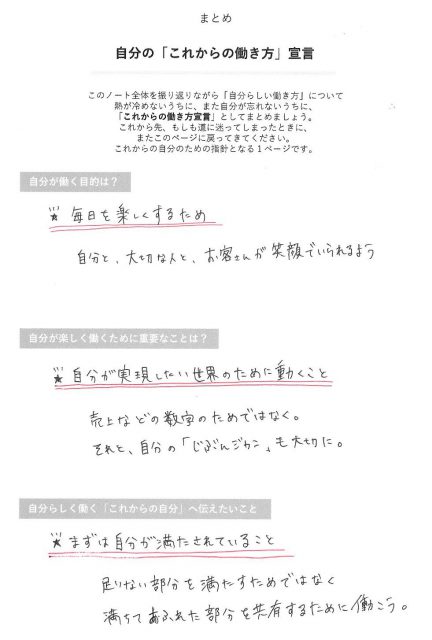 まとめ
自分の「これからの働き方」宣言
このノート全体を振り返りながら『自分らしい働き方』について
熱が冷めないうちに、また自分が忘れないうちに、
「これからの働き方宣言」としてまとめましょう。
これから先、もしも道に迷ってしまったときに、
またこのページに戻ってきてください。
これからの自分のための指針となる1ページです。
自分が働く目的は？
毎日を楽しくするため
自分と、大切な人と、お客さんが笑顔でいられるよう
自分が楽しく働くために重要なことは？
自分が実現したい世界のために動くこと
売上などの数字のためではなく。
それと、自分の「じぶんジカン」も大切に。
自分らしく働く「これからの自分」へ伝えたいこと
まずは自分が満たされていること
足りない部分を満たすためではなく
満ちてあふれた部分を共有するために働こう。